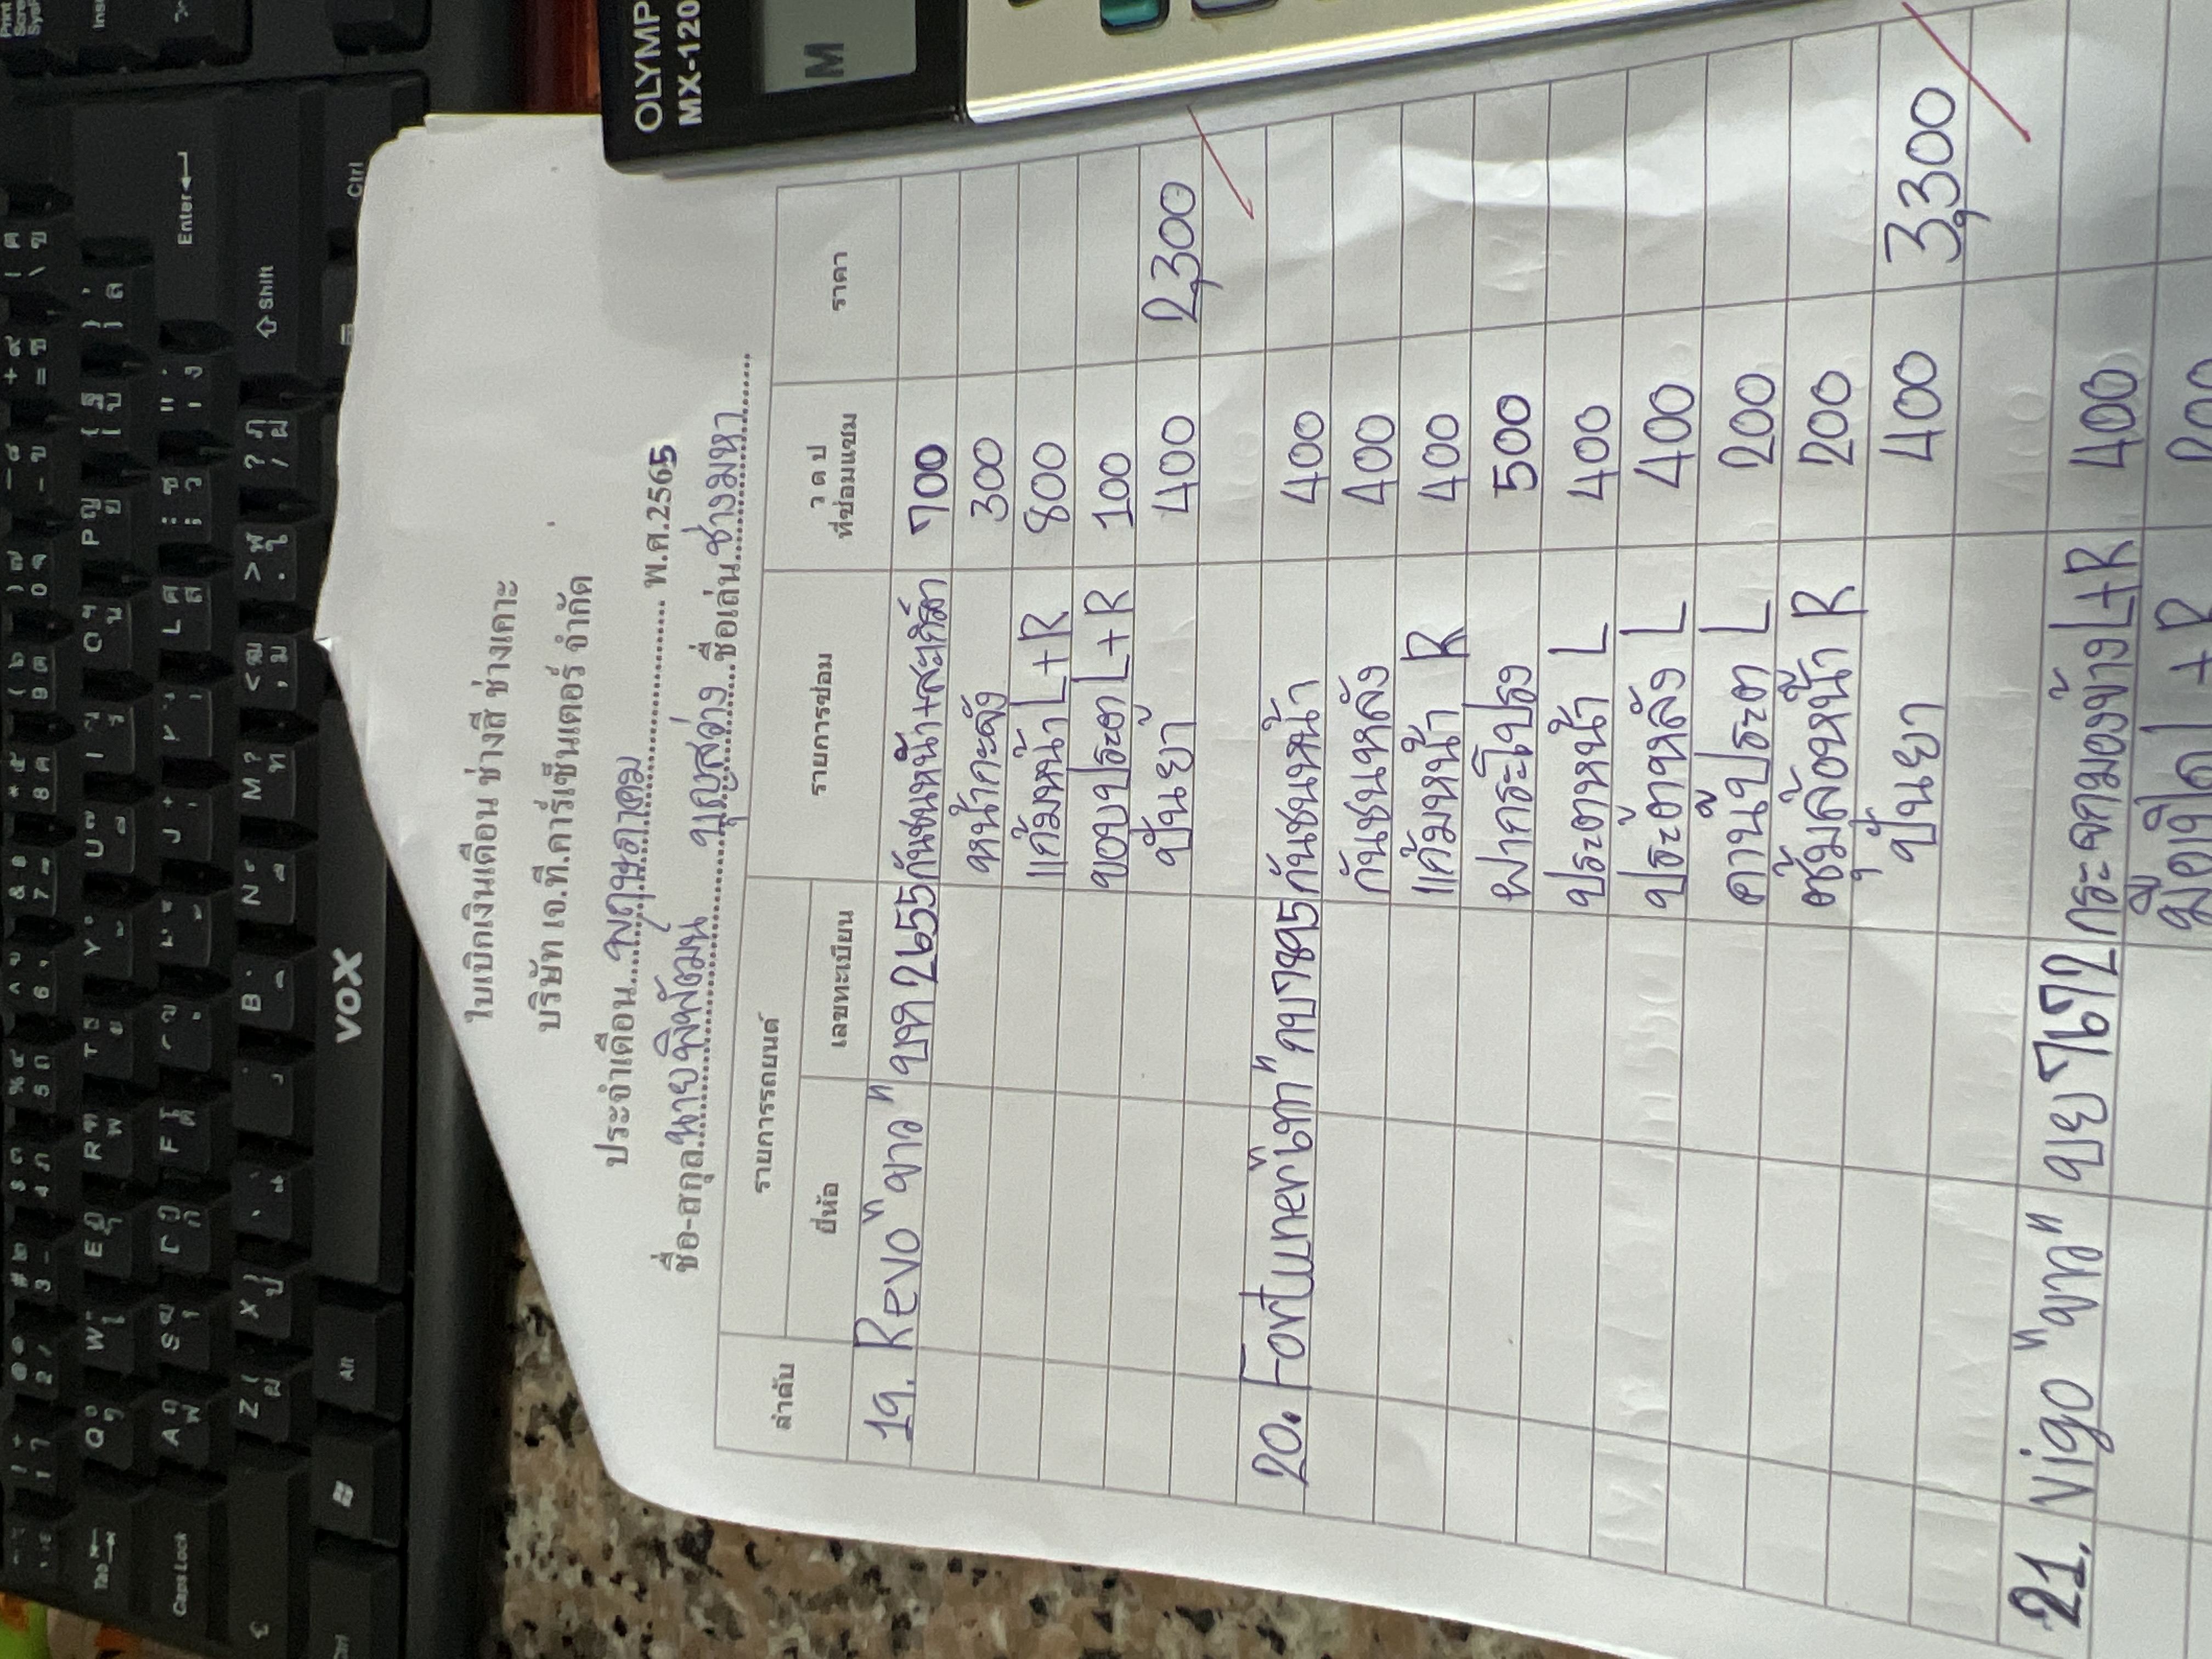 OLYMP
MX-120
M
Enter
Shift
Ctrl
VOX
Alt
Caps Lock
Tab
ใบเบิกเงินเดือน ช่างสี ช่างเคาะ
บริษัท เจ.ที.คาร์เซ็นเตอร์ จำกัด
ประจำเดือน...พฤษภาคม... พ.ศ.2565
ชื่อ-สกุล.นายพิพัฒน บุญสว่าง..ชื่อเล่น.ช่างมหา
ลำดับ รายการรถยนต์ รายการซ่อม ว ด ป ที่ซ่อมแซม ราคา
ยี่ห้อ เลขทะเบียน
19. Revo "ขาว" บท 2655 กันชนหน้า+สะกิ๊ต 700
หน้ากะจัง 300
แก้มหน้า L+R 800
ขอบประตู L+R 100
ปั่นยา 400 2,300
20. Fortuner "เทา" กบ 7895 กันชนหน้า 400
กันชนหลัง 400
แก้มหน้า R 400
ฝากระโปรง 500
ประตูหน้า L 400
ประตูหลัง L 400
คานประตู L 200
ซุ้มล้อหน้า R 200
ปั่นยา 400 3,300
21. Vigo "ขาว" ขย 7672 กระจกมองข้าง L+R 400
มือเปิด L+R 200